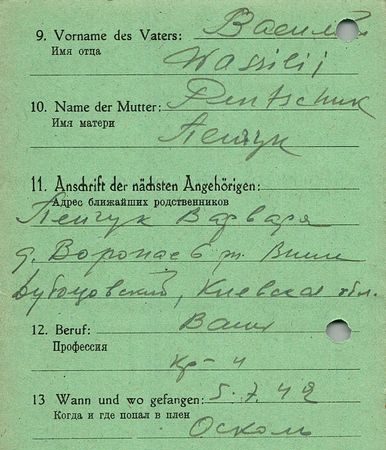 9. Vorname des Vaters: Василий
Имя отца
Wassilij
10. Name der Mutter: Pentschuk
Имя матери
Пенчук
11. Anschrift der nächsten Angehörigen:
Адрес ближайших родственников
Пенчук Варвара
д.
Киевская обл.
12. Beruf:
Профессия
кр-н
13 Wann und wo gefangen: 5.7.42
Когда и где попал в плен
Осколь